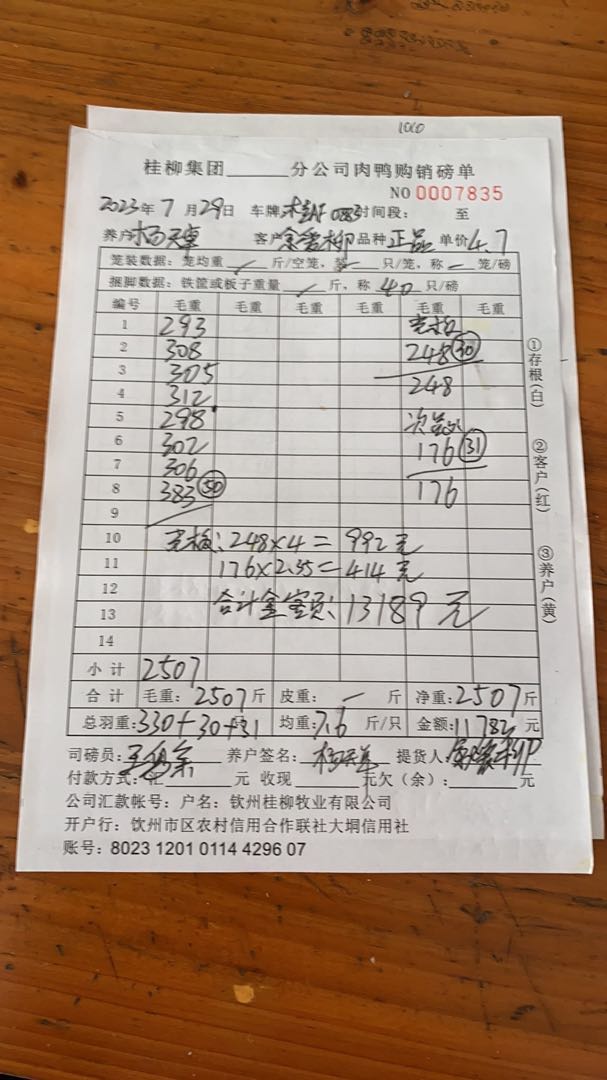 1010
桂柳集团______分公司肉鸭购销磅单
NO 0007835
2023年7月29日 车牌 时间段: 至
养户 杨天 客户 品种 正品 单价 4.7
笼装数据: 笼均重 / 斤/空笼, 装 只/笼, 称 笼/磅
捆脚数据: 铁筐或板子重量 / 斤, 称 40 只/磅
编号 毛重 毛重 毛重 毛重 毛重 毛重
1 293
2 308 248 (30)
3 305 248
4 312
5 298 次品
6 302 176 (31)
7 306
8 383 (50) 176
9
10 248×4= 992元
11 176×2.35=414元
12
13 合计金额: 13189元
14
小计 2507
合计 毛重: 2507斤 皮重: — 斤 净重: 2507斤
总羽重: 330+30+31 均重: 7.6 斤/只 金额: 11782元
司磅员: 养户签名: 杨天 提货人:
付款方式:汇______元 收现______元欠(余):______元
公司汇款帐号: 户名: 钦州桂柳牧业有限公司
开户行: 钦州市区农村信用合作联社大垌信用社
账号: 8023 1201 0114 4296 07
①存根(白)
②客户(红)
③养户(黄)